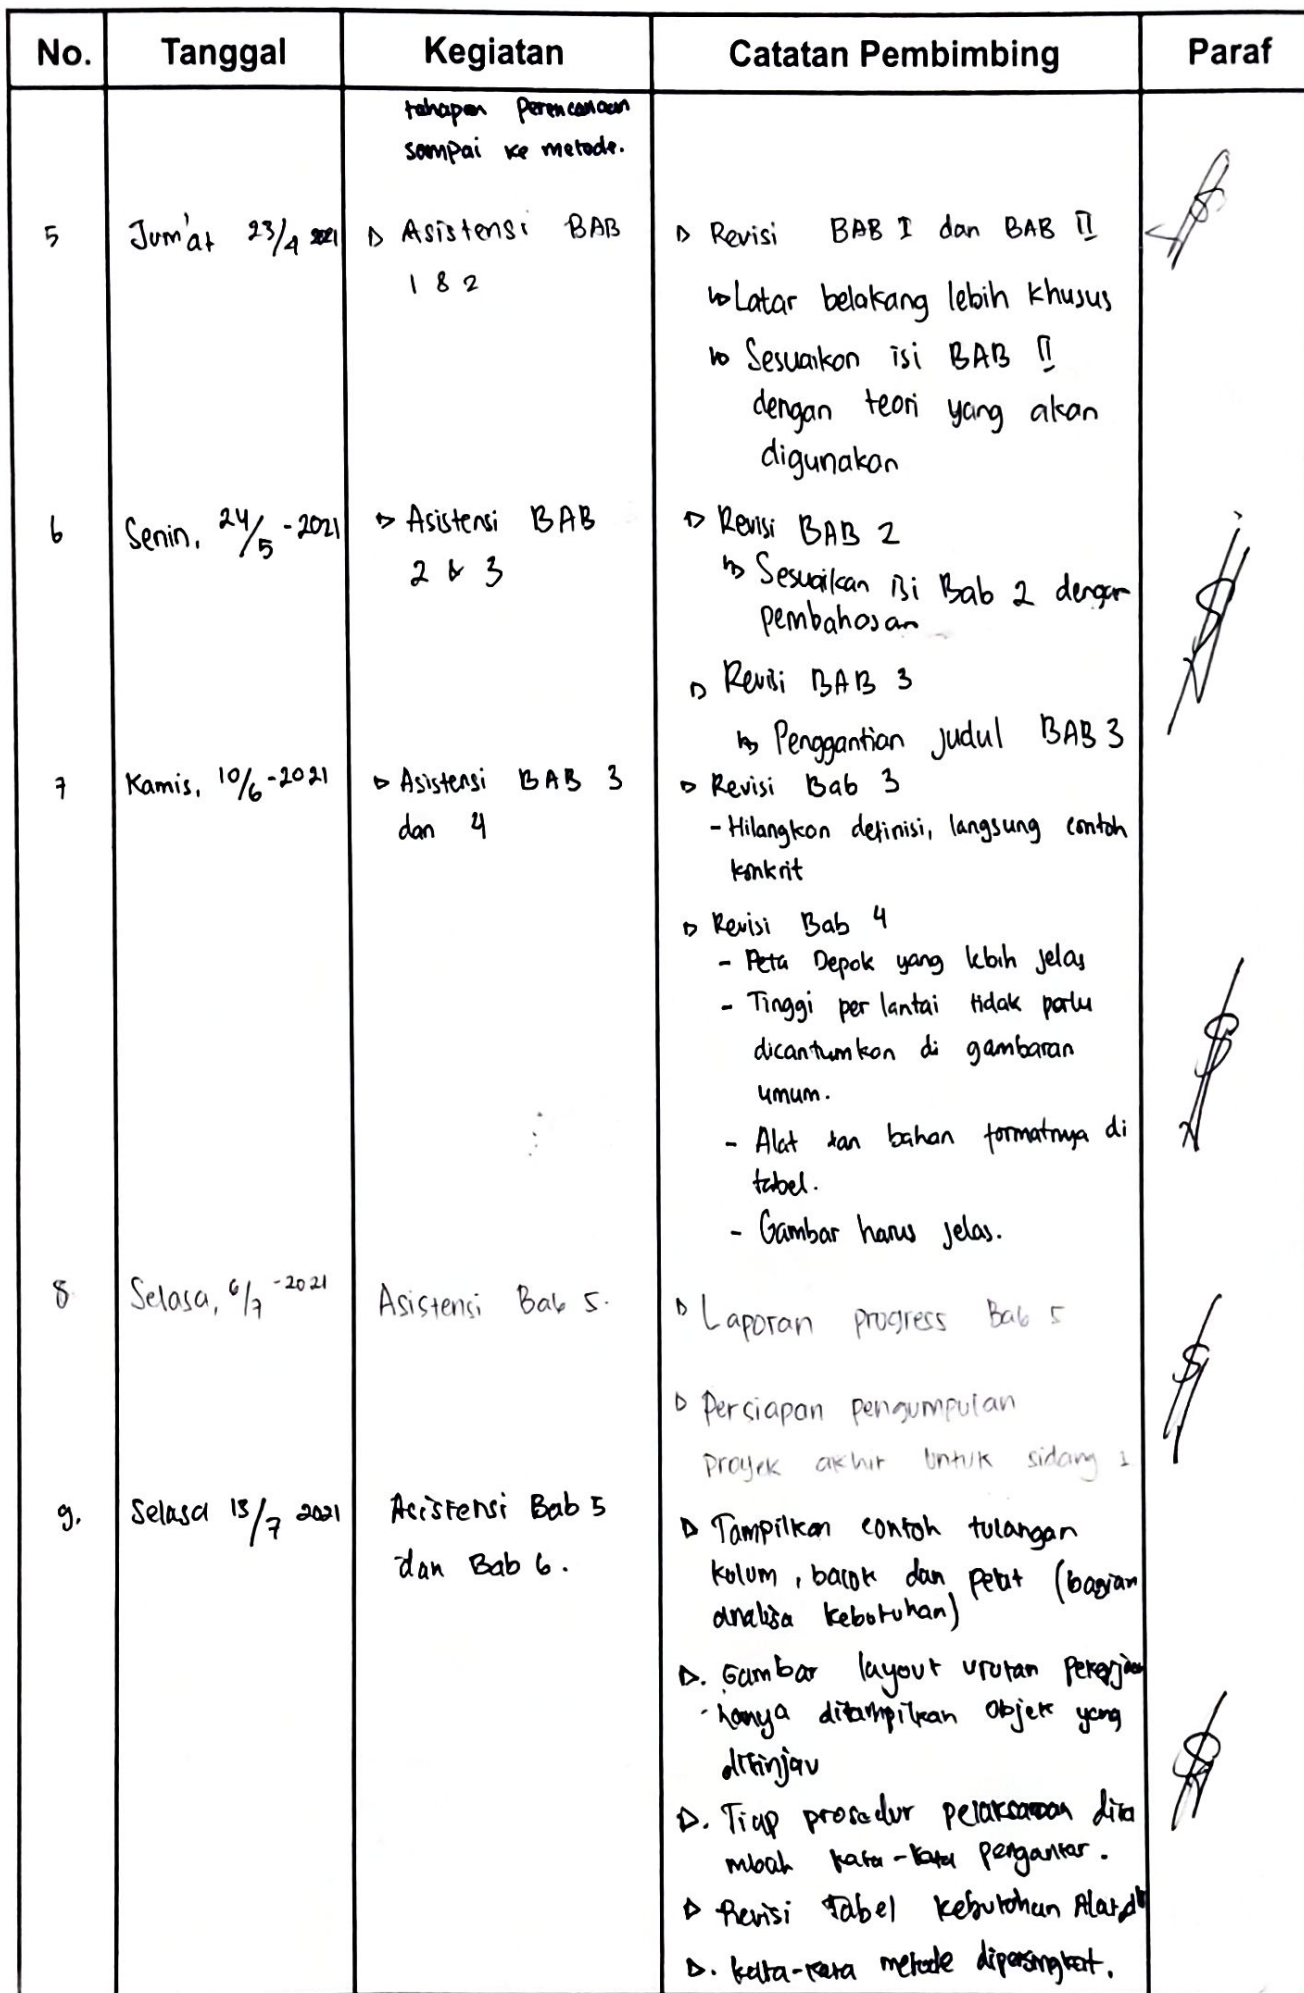 No. Tanggal Kegiatan Catatan Pembimbing Paraf
tahapan perencanaan
sampai ke metode.
5 Jum'at 23/4 2021 Asistensi BAB
1 & 2
Revisi BAB I dan BAB II
Latar belakang lebih khusus
Sesuaikan isi BAB II
dengan teori yang akan
digunakan
6 Senin, 24/5 - 2021 Asistensi BAB
2 & 3
Revisi BAB 2
Sesuaikan isi Bab 2 dengan
pembahasan
Revisi BAB 3
Penggantian judul BAB 3
7 Kamis, 10/6 - 2021 Asistensi BAB 3
dan 4
Revisi Bab 3
- Hilangkan definisi, langsung contoh
konkrit
Revisi Bab 4
- Peta Depok yang lebih jelas
- Tinggi per lantai tidak perlu
dicantumkan di gambaran
umum.
- Alat dan bahan formatnya di
tabel.
- Gambar harus jelas.
8 Selasa, 6/7 - 2021 Asistensi Bab 5.
Laporan progress Bab 5
Persiapan pengumpulan
proyek akhir untuk sidang 1
9. Selasa 13/7 2021 Asistensi Bab 5
dan Bab 6.
Tampilkan contoh tulangan
kolum, balok dan pelat (bagian
analisa kebutuhan)
. Gambar layout urutan pekerjaan
hanya ditampilkan objek yang
ditinjau
. Tiap prosedur pelaksanaan dita
mbah kata-kata pengantar.
Revisi Tabel kebutuhan Alat
. kata-kata metode dipersingkat.